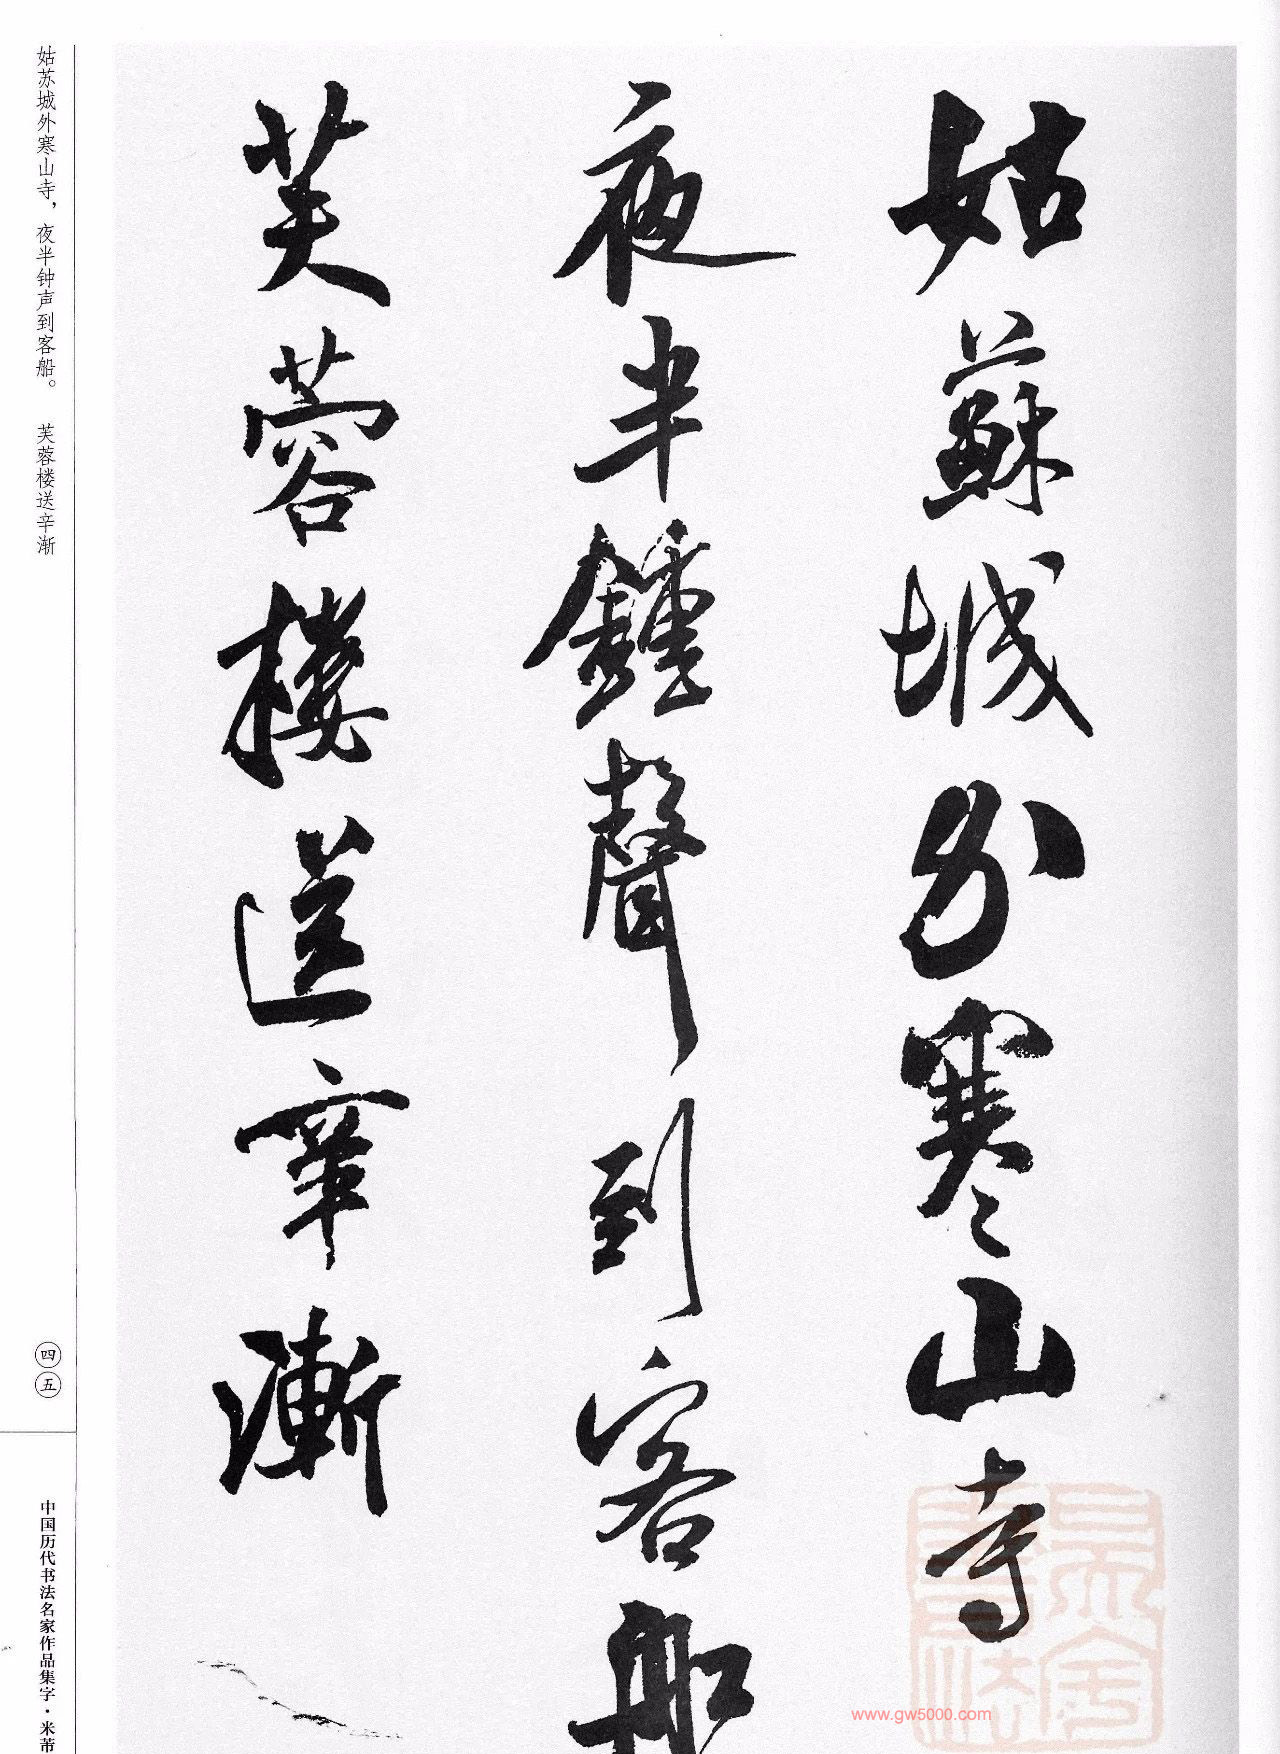 姑蘇城外寒山寺
夜半鍾聲到客船
芙蓉樓送辛漸
姑苏城外寒山寺，夜半钟声到客船。 芙蓉楼送辛渐
四五
中国历代书法名家作品集字·米芾
www.gw5000.com